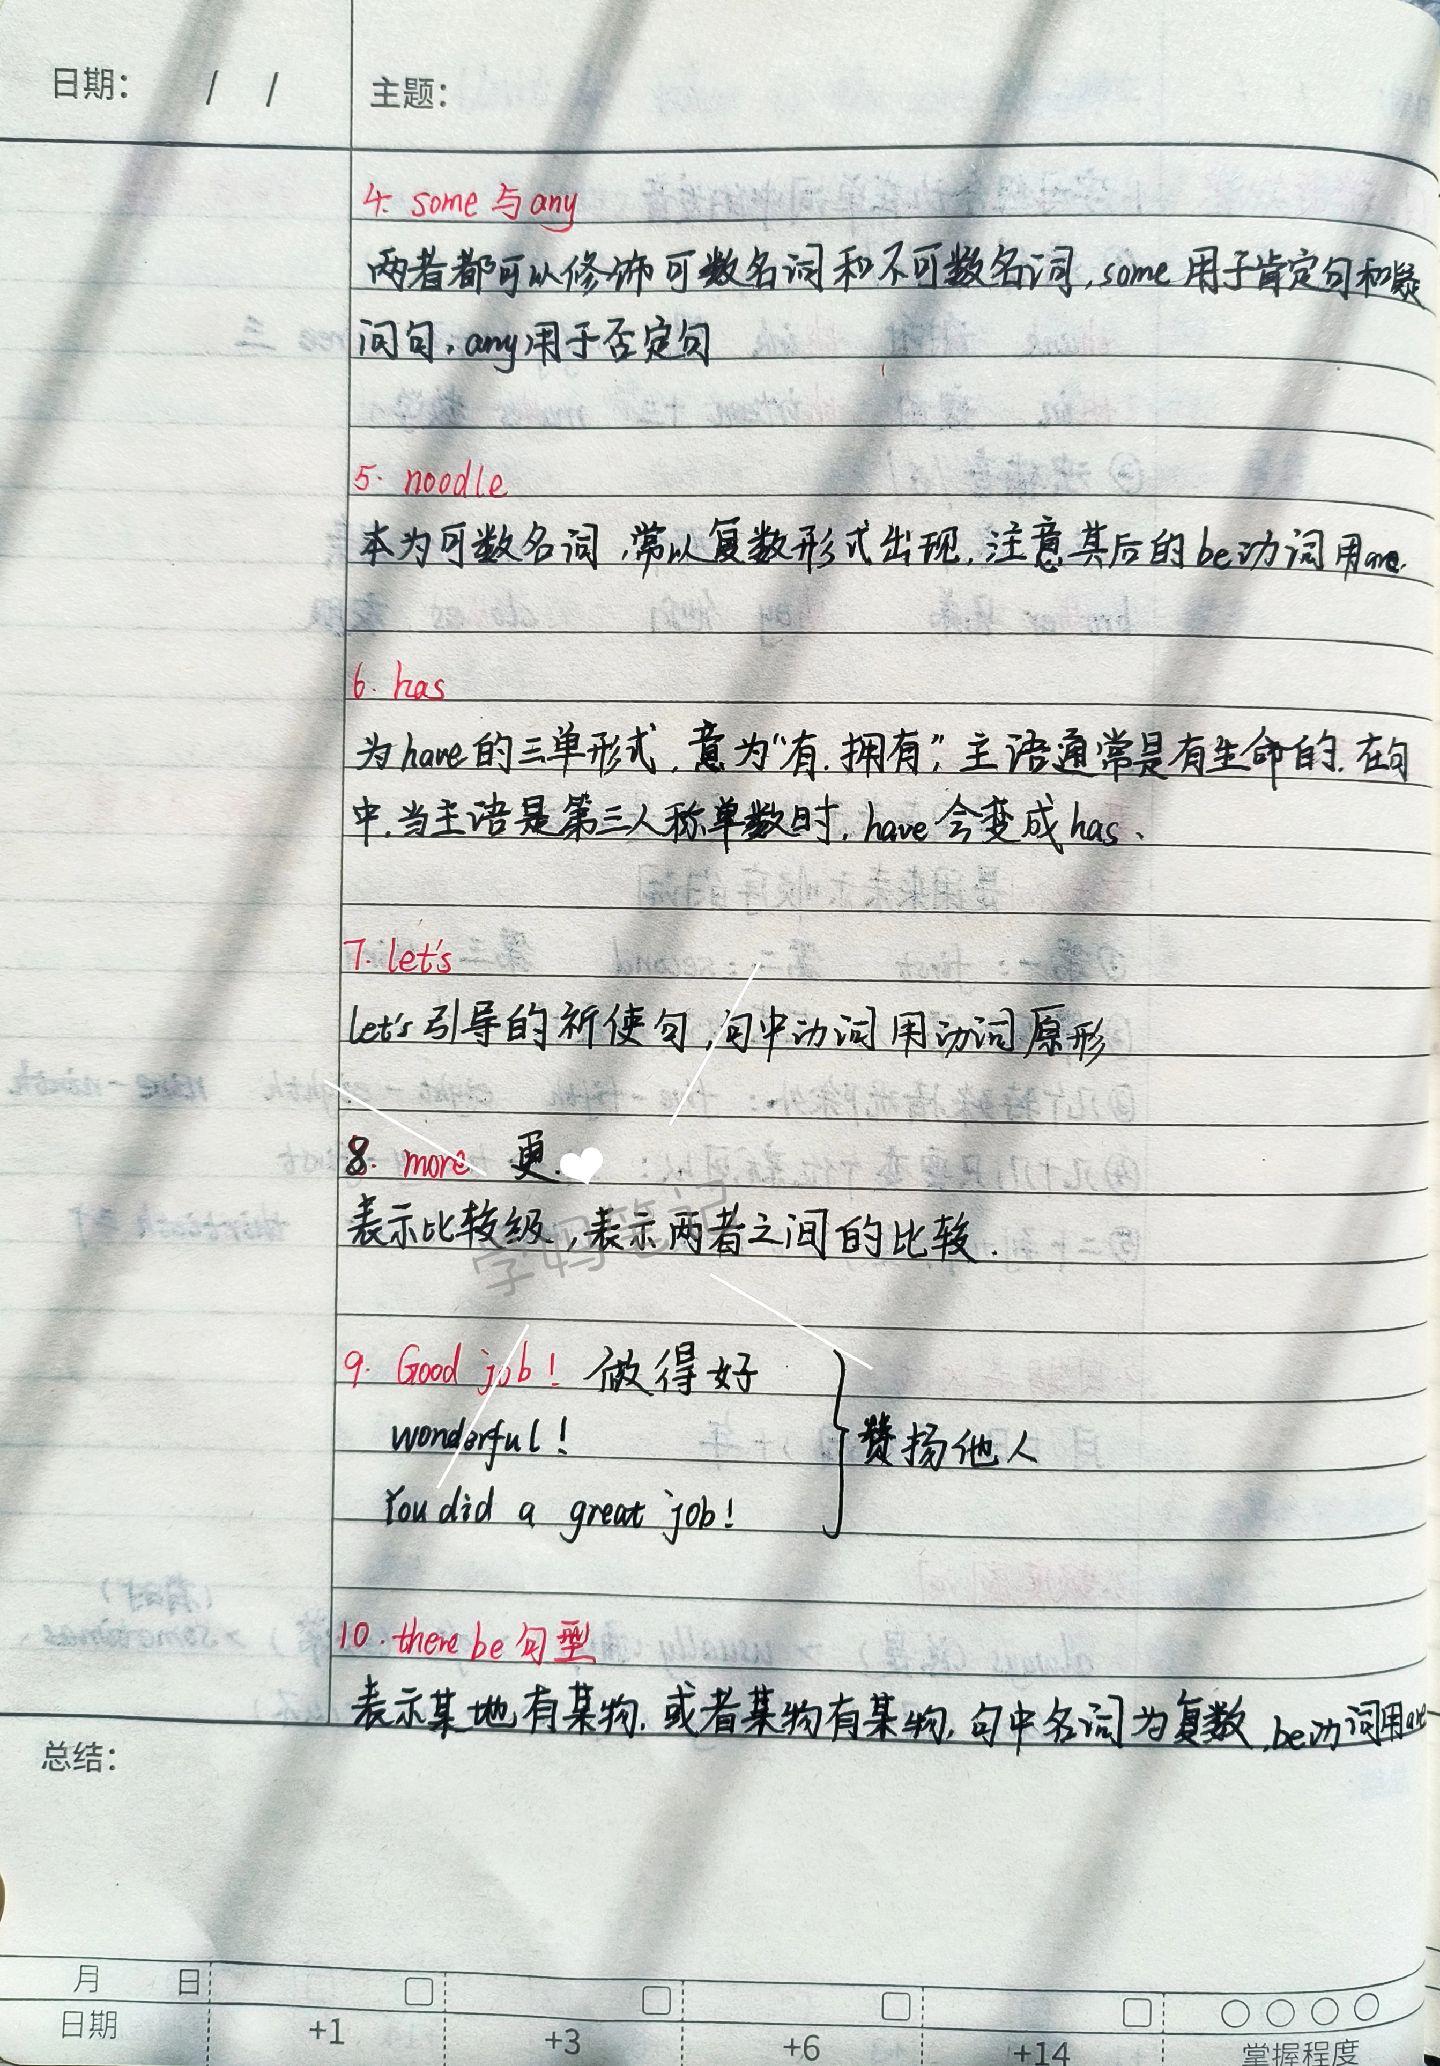 日期： / / 主题：
4. some 与 any
两者都可以修饰可数名词和不可数名词，some 用于肯定句和疑
问句，any用于否定句
5. noodle
本为可数名词，常以复数形式出现，注意其后的be动词用are.
6. has
为have的三单形式，意为"有，拥有"，主语通常是有生命的，在句
中，当主语是第三人称单数时，have 会变成has、
7. let's
let's引导的祈使句，句中动词用动词原形
8. more 更.
表示比较级，表示两者之间的比较.
学妈笔记
9. Good job! 做得好
wonderful!
You did a great job!
赞扬他人
10. there be 句型
表示某地有某物，或者某物有某物，句中名词为复数，be动词用are
总结：
月 日
日期 +1 +3 +6 +14 掌握程度